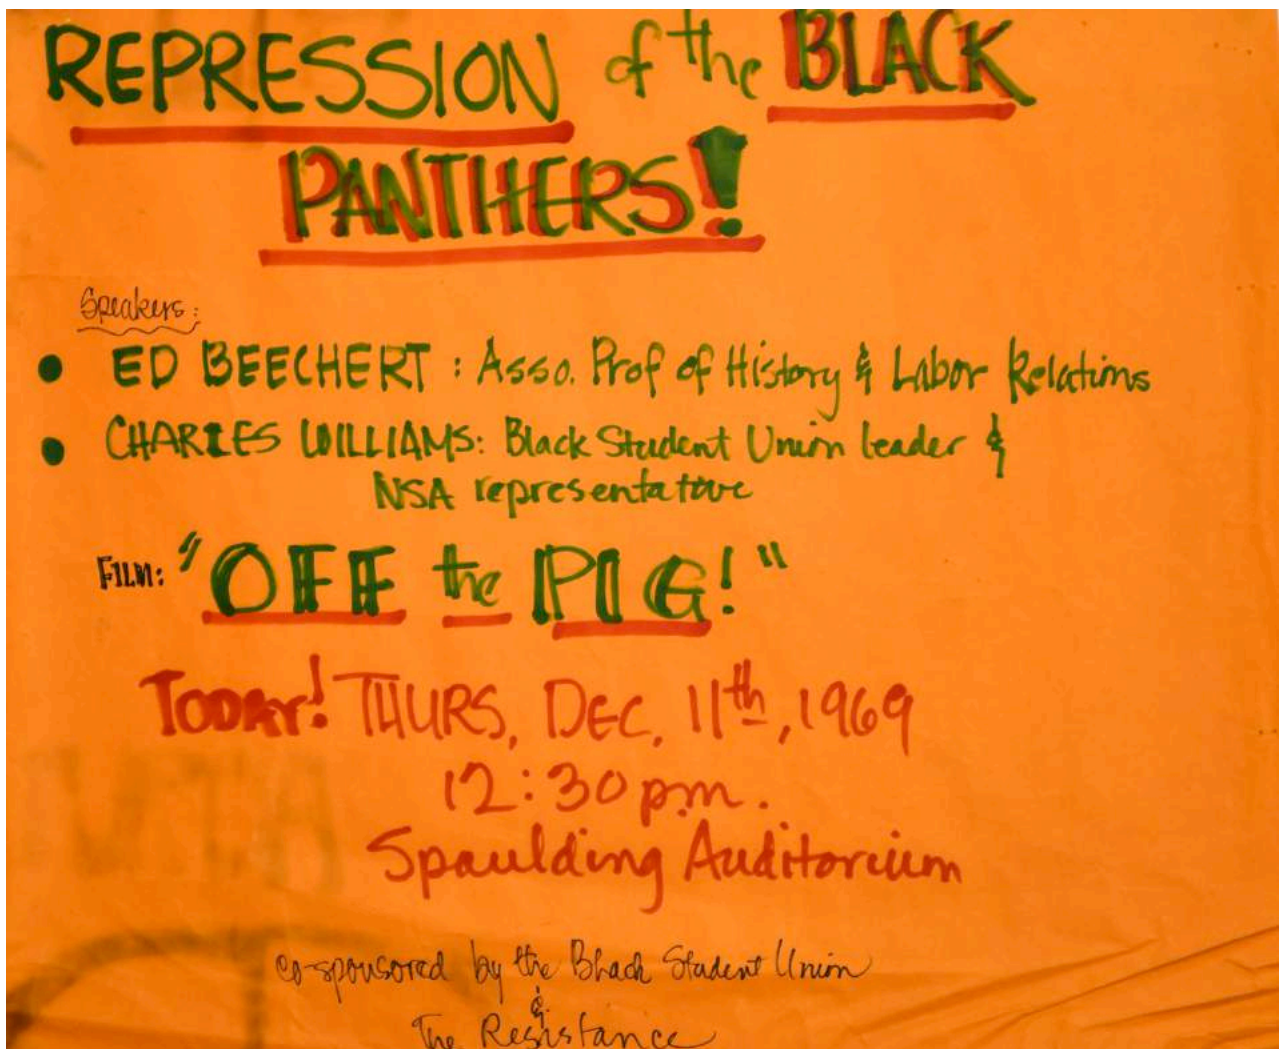 REPRESSION of the BLACK
PANTHERS!
Speakers:
• ED BEECHERT : Asso. Prof of History & Labor Relations
• CHARLES WILLIAMS: Black Student Union leader &
NSA representative
FILM: "OFF the PIG!"
TODAY! THURS, DEC. 11th, 1969
12:30 pm.
Spaulding Auditorium
co-sponsored by the Black Student Union
&
The Resistance